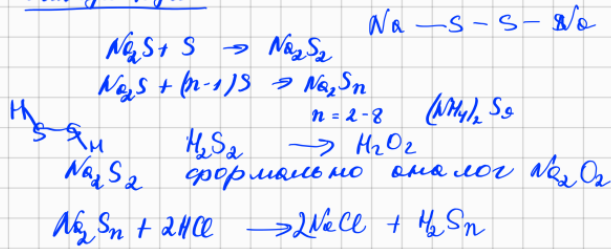 Na — S — S — Na
Na₂S + S → Na₂S₂
Na₂S + (n-1)S → Na₂Sn
n = 2-8 (NH₄)₂S₉
H S — S H
H₂S₂ → H₂O₂
Na₂S₂ формально аналог Na₂O₂
Na₂Sn + 2HCl → 2NaCl + H₂Sn